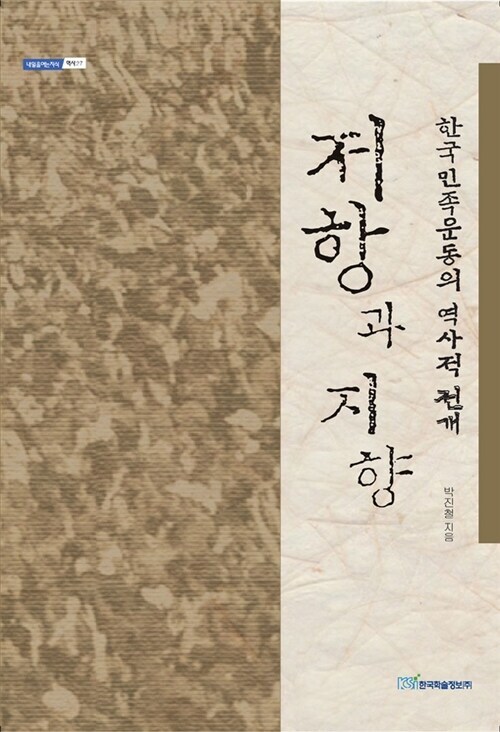 내일을여는지식 역사27
한국민족운동의 역사적 전개
저항과 지향
박진철 지음
KSI 한국학술정보(주)